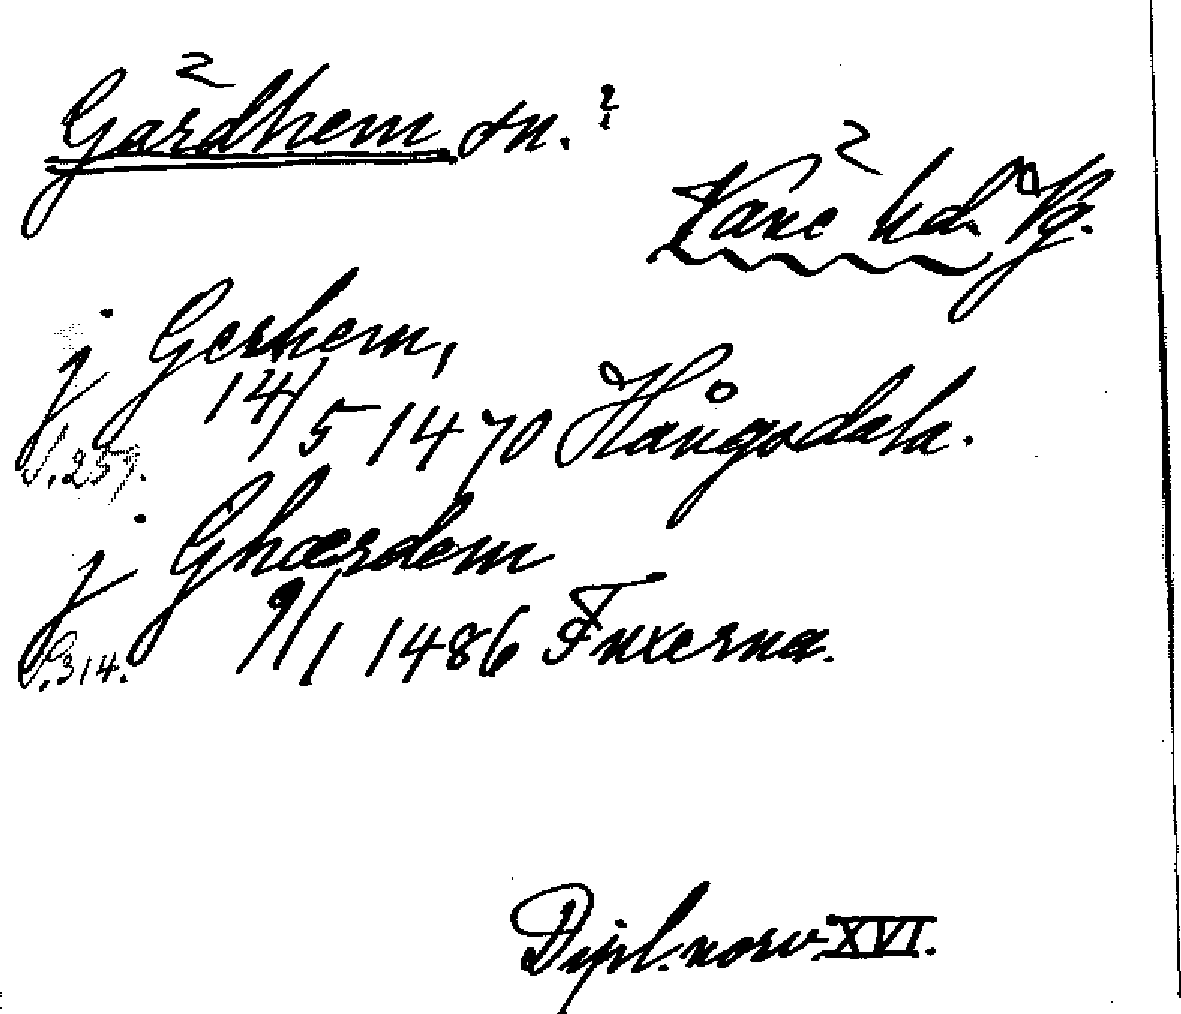 Gärdhem sn.
Väne hd. Vg.
j Gerhem,
s. 259. 14/5 1470 Hångsdala.
j Ghærdem
s. 314. 9/1 1486 Fuxerna.
Dipl. norv XVI.